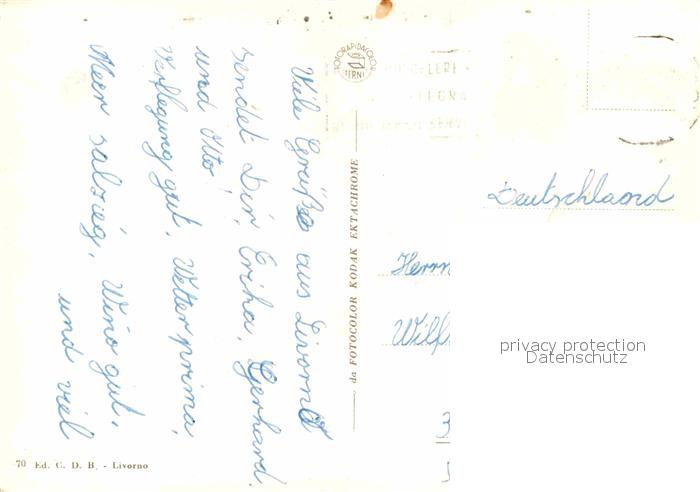 Viele Grüße aus Livorno
sendet Dir, Erika, Gerhard
und Otto!
Verpflegung gut, Wetter prima,
Meer salzig, Wino gut,
und viel
da FOTOCOLOR KODAK EKTACHROME
Deutschland
Herrn
Wilf
privacy protection
Datenschutz
70 Ed. C. D. B. - Livorno